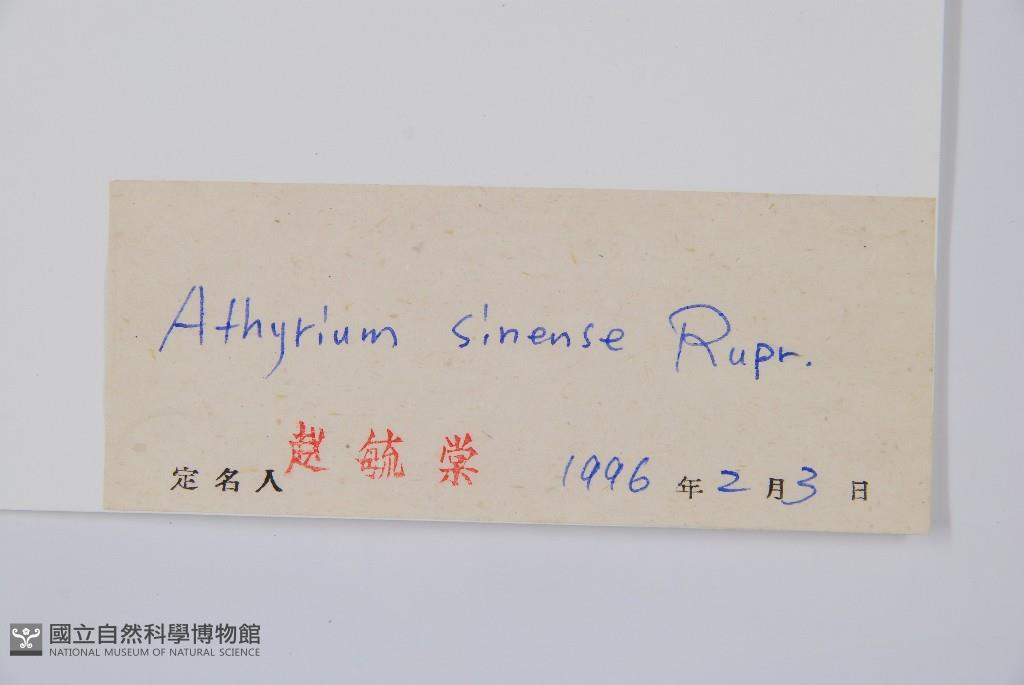 Athyrium sinense Rupr.
定名人 赵毓棠 1996 年 2 月 3 日
國立自然科學博物館
NATIONAL MUSEUM OF NATURAL SCIENCE